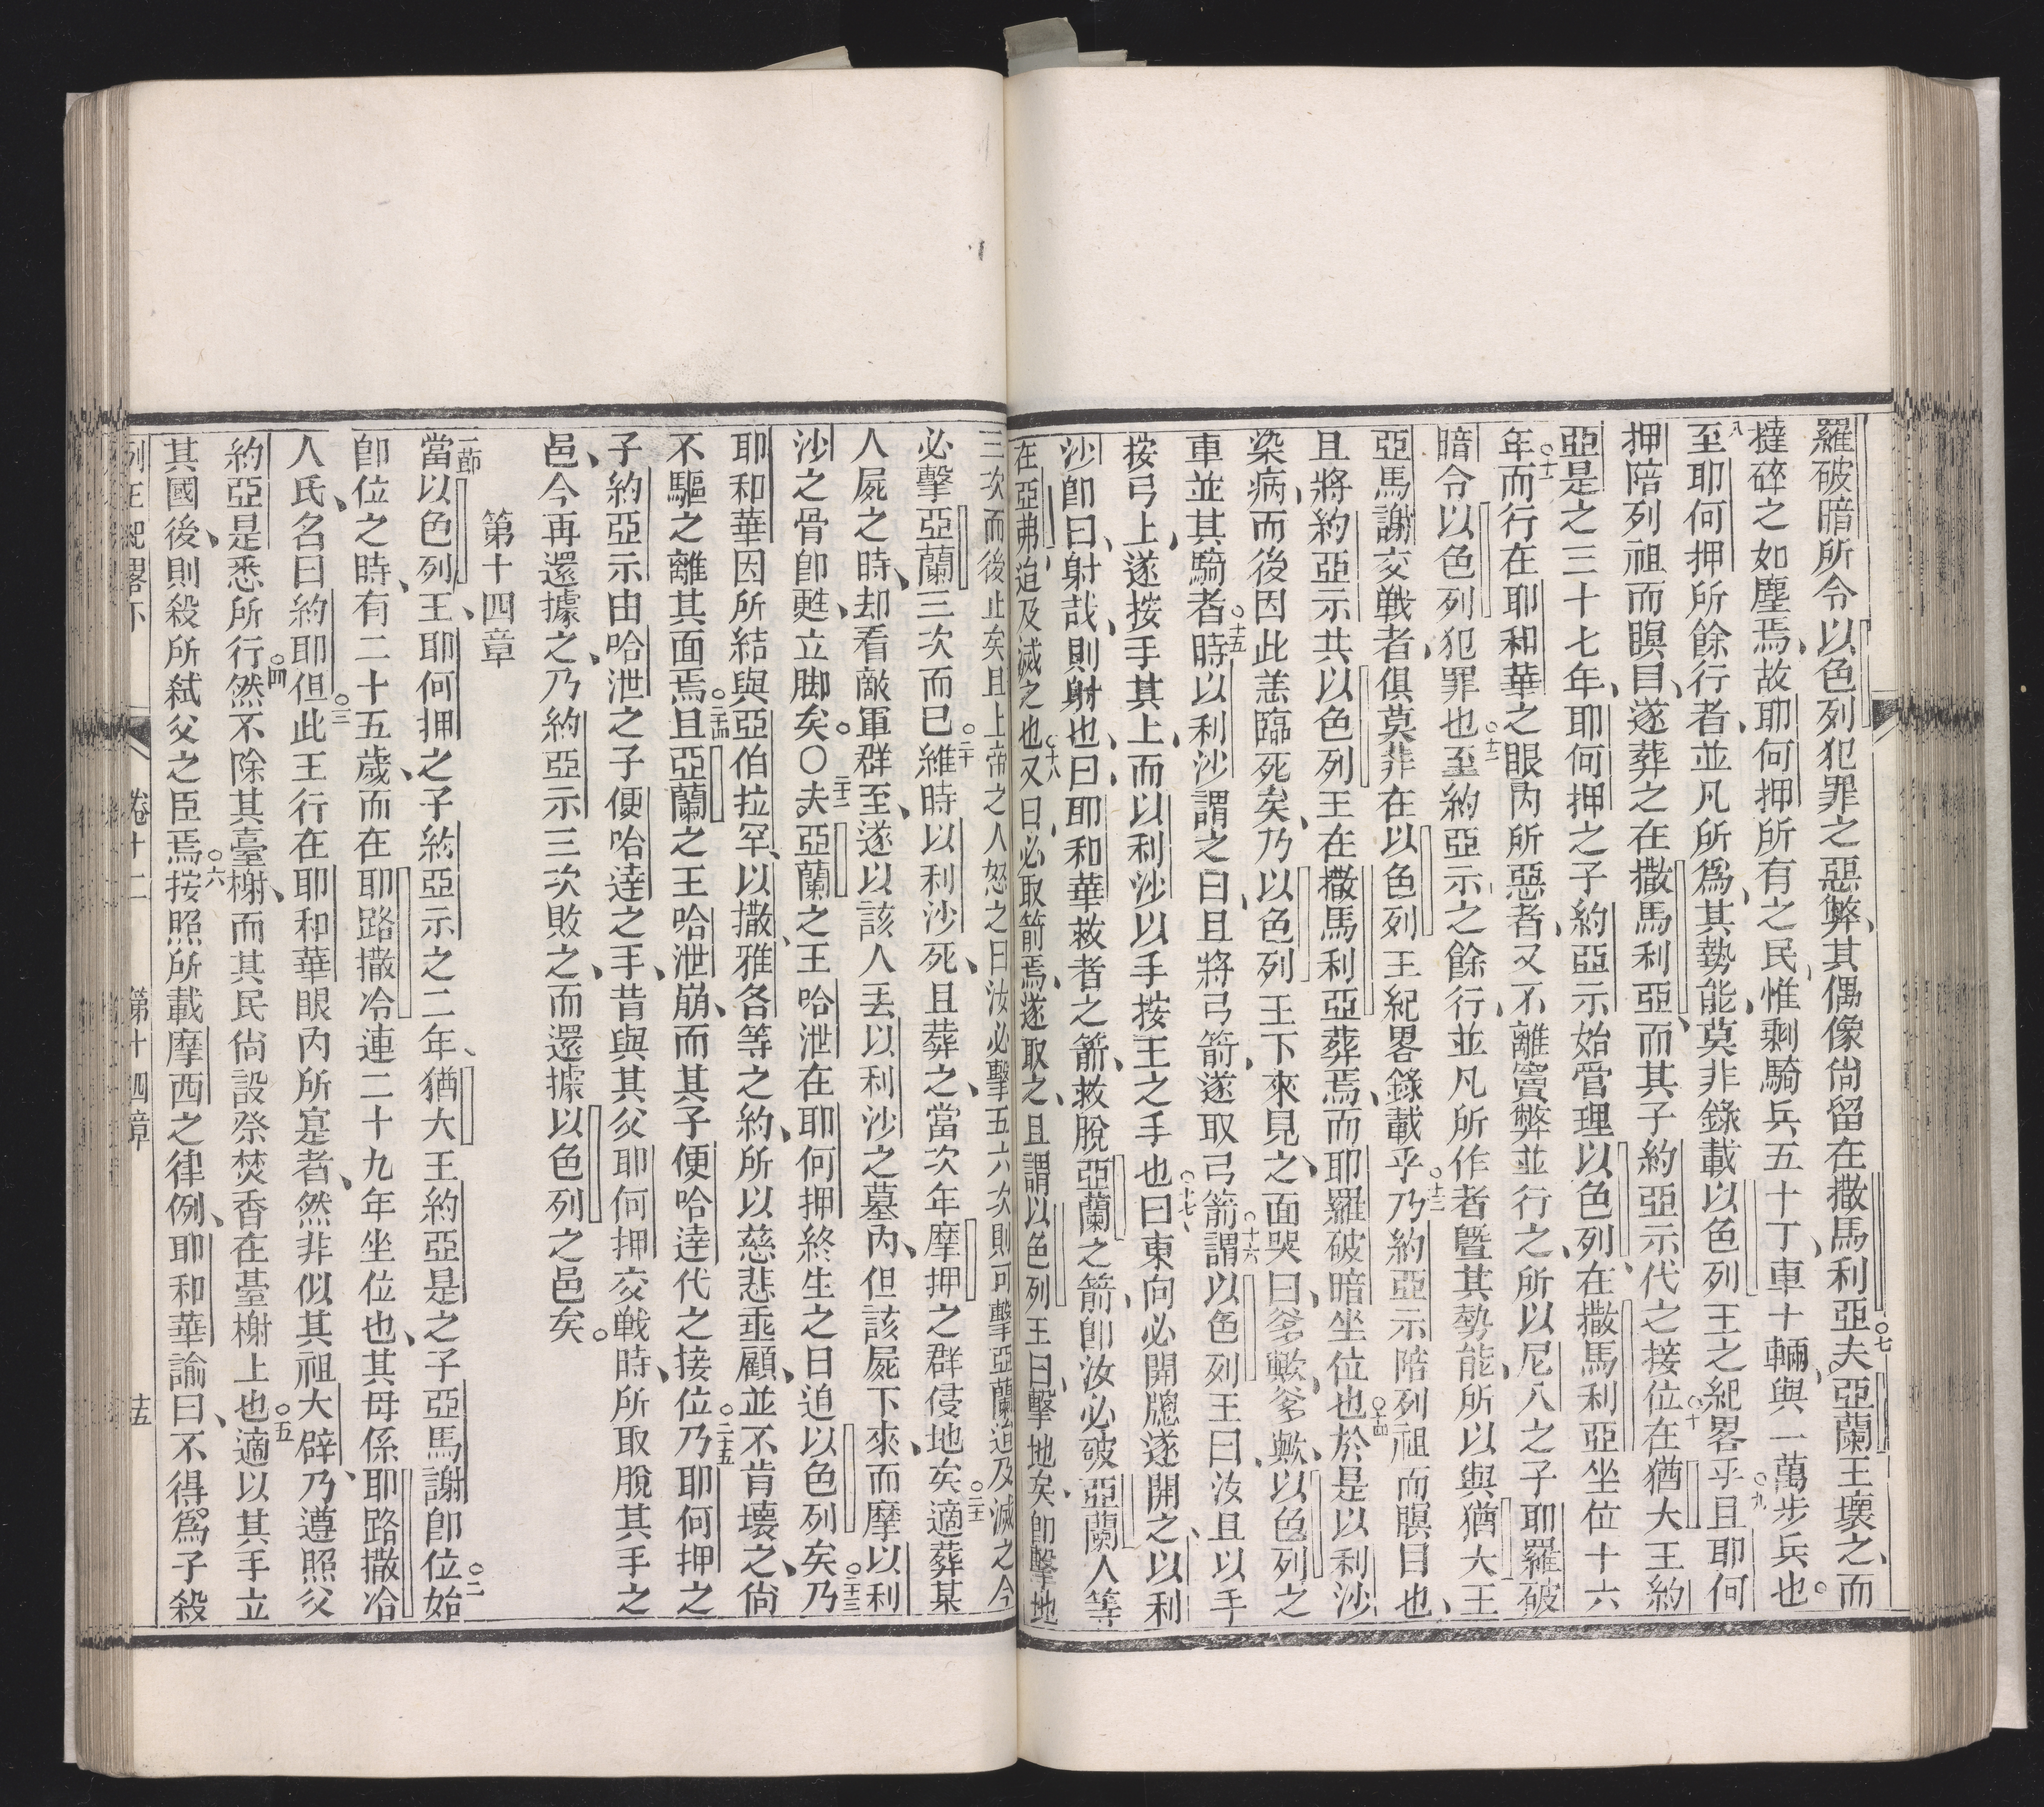 羅破暗所令以色列犯罪之惡弊、其偶像尙留在撒馬利亞。○七夫亞蘭王壞之、而
撻碎之如塵焉、故耶何押所有之民、惟剩騎兵五十丁、車十輛、與一萬步兵也。
八至耶何押所餘行者、並凡所爲、其勢能、莫非錄載以色列王之紀畧乎。○九且耶何
押陪列祖而瞑目、遂葬之在撒馬利亞、而其子約亞示代之接位。○十在猶大王約
亞是之三十七年、耶何押之子約亞示始管理以色列、在撒馬利亞坐位十六
年。○十一而行在耶和華之眼內所惡者、又不離竇弊並行之、所以尼八之子耶羅破
暗令以色列犯罪也。○十二至約亞示之餘行、並凡所作者曁其勢能、所以與猶大王
亞馬謝交戰者、俱莫非在以色列王紀畧錄載乎。○十三乃約亞示陪列祖而瞑目也、
且將約亞示共以色列王在撒馬利亞葬焉、而耶羅破暗坐位也。○十四於是以利沙
染病、而後因此恙臨死矣、乃以色列王下來見之、面哭曰、爹歟爹歟、以色列之
車並其騎者。○十五時以利沙謂之曰、且將弓箭、遂取弓箭。○十六謂以色列王曰、汝且以手
按弓上、遂按手其上、而以利沙以手按王之手也。○十七曰、東向必開牕、遂開之、以利
沙卽曰、射哉、則射也、曰、耶和華救者之箭、救脫亞蘭之箭、卽汝必破亞蘭人等
在亞弗、迨及滅之也。○十八又曰、必取箭焉、遂取之、且謂以色列王曰、擊地矣、卽擊地
三次而後止矣。且上帝之人怒之曰、汝必擊五六次、則可擊亞蘭迨及滅之、今
必擊亞蘭三次而已。○二十維時以利沙死、且葬之、當次年摩押之群侵地矣。○二十一適葬某
人屍之時、却看敵軍群至、遂以該人丟以利沙之墓內、但該屍下來、而摩以利
沙之骨卽甦、立脚矣。○○二十二夫亞蘭之王哈泄在耶何押終生之日迫以色列矣。○二十三乃
耶和華因所結與亞伯拉罕、以撒、雅各等之約、所以慈悲垂顧、並不肯壞之、尙
不驅之離其面焉。○二十四且亞蘭之王哈泄崩、而其子便哈達代之接位。○二十五乃耶何押之
子約亞示由哈泄之子便哈達之手、昔與其父耶何押交戰時、所取脫其手之
邑、今再還據之、乃約亞示三次敗之、而還據以色列之邑矣。
第十四章
一節當以色列王、耶何押之子約亞示之二年、猶大王約亞是之子亞馬謝卽位。○二始
卽位之時、有二十五歲、而在耶路撒冷連二十九年坐位也、其母係耶路撒冷
人氏、名曰約耶但。○三此王行在耶和華眼內所寔者、然非似其祖大辟、乃遵照父
約亞是悉所行。○四然不除其臺榭、而其民尙設祭焚香在臺榭上也。○五適以其手立
其國後、則殺所弒父之臣焉。○六按照所載摩西之律例、耶和華諭曰、不得爲子殺
列王紀畧下 卷十二 第十四章 十五